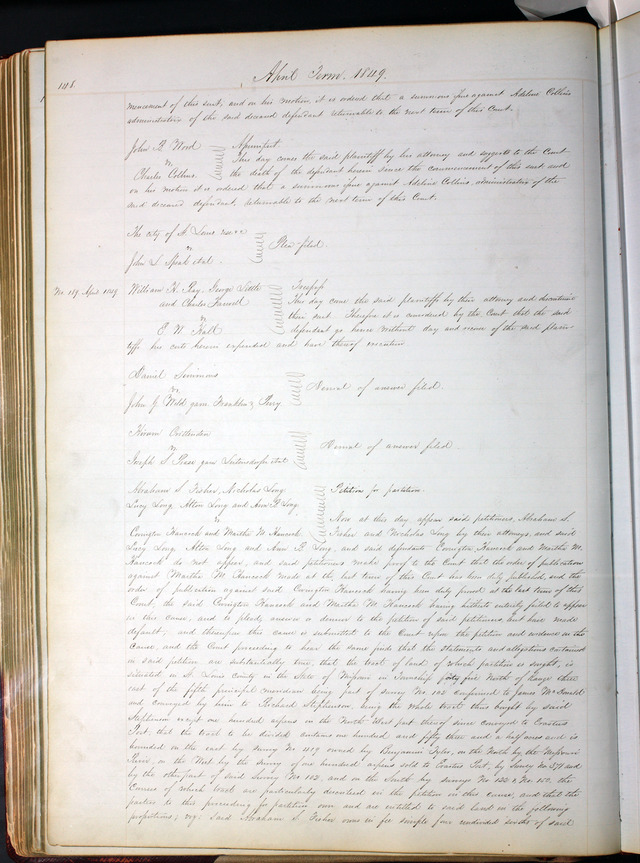 148.
April Term. 1849.
mencement of this suit, and on his motion, it is ordered that a summons issue against Adeline Collins
administratrix of the said deceased defendant returnable to the next term of this Court.
John B. Wood
vs.
Charles Collins
Assumpsit
This day comes the said plaintiff by his attorney and suggests to the Court
the death of the defendant herein since the commencement of this suit and
on his motion it is ordered that a summons issue against Adeline Collins, administratrix of the
said deceased dependent, returnable to the next term of this Court.
The city of St Louis
vs
John L. et al.
Plea filed.
No 119. April 1849
William H. Ray, George Little
and Charles Farwell
vs
E. W. Hall
Trespass
This day came the said plaintiffs by their attorney and discontinue
their suit. Therefore it is considered by the Court that the said
defendant go hence without day and recover of the said plain-
tiffs his costs herein expended and have thereof execution
Daniel Simmons
vs.
John J. Wild garn. Franklin &
Denial of answer filed.
Hiram Crittenden
vs
Joseph S. garn et al
Denial of answer filed.
Abraham S. Fisher, Nicholas Long
Lucy Long, Alton Long and Ann P. Long
vs
Covington Hancock and Martha W. Hancock
Petition for partition.
Now at this day appear said petitioners, Abraham S.
Fisher and Nicholas Long by their attorneys, and said
Lucy Long, Alton Long and Ann P. Long, and said defendants Covington Hancock and Martha W.
Hancock do not appear, and said petitioners make proof to the Court that the order of publication
against Martha W. Hancock made at the last term of this Court has been duly published, and the
order of publication against said Covington Hancock having been duly proved at the last term of this
Court, the said Covington Hancock and Martha W Hancock having hitherto entirely failed to appear
in this cause, and to plead, answer or demur to the petition of said petitioners, but have made
default, and thereupon this cause is submitted to the Court upon the petition and evidence in the
Cause, and the Court proceeding to hear the same finds that the statements and allegations contained
in said petition are substantially true, that the tract of land of which partition is sought, is
situated in St. Louis County in the State of Missouri in Township forty five North of Range three
east of the fifth principal meridian being part of survey No. 102 confirmed to James McDonald
and conveyed by him to Richard Stephenson, being the whole tract thus bought by said
Stephenson except one hundred arpens in the North West part thereof since conveyed to
Post, that the tract to be divided contains one hundred and fifty three and a half acres and is
bounded on the east by survey No 1109 owned by Benjamin Tyler, on the North by the Missouri
River, on the West by the survey of one hundred arpens sold to Post, by Survey No 371 and
by the other part of said Survey No 102, and on the South by surveys No 122 & No 150, the
Courses of which tract are particularly described in the petition in this cause, and that the
parties to this proceeding for partition own and are entitled to said land in the following
proportions; viz: Said Abraham S. Fisher owns in fee simple four undivided sevenths of said